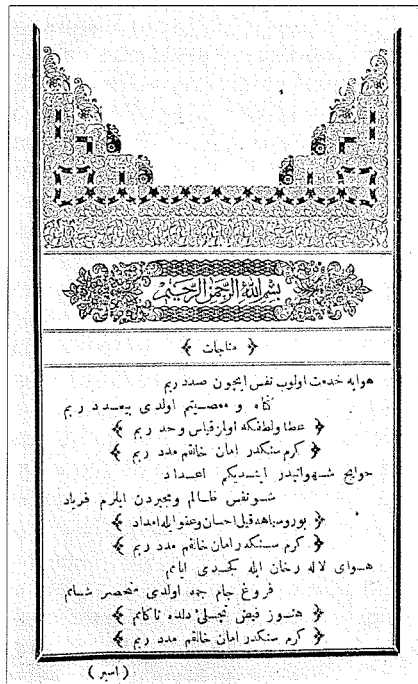 بسم الله الرحمن الرحيم
﴿ مناجات ﴾
هوايه خدمت اولوب نفس ايچون صددربم
كناه و معصيتم اولدى بيعددربم
﴿ عطا ولطفكه اولمز قياس وحدربم ﴾
﴿ كرم سنكدر امان خالقم مددربم ﴾
حوايج شهوانيدر ايتديكم اعداد
شو نفس ظالم و مجبردن ايلرم فرياد
﴿ احسان وعفو ايله امداد ﴾
﴿ كرم سنكدر امان خالقم مددربم ﴾
هواى لاله رخان ايله كچدى ايامم
فروغ جام جم اولدى منحصر شامم
﴿ هنوز فيض تجلئ دلده ناكامم ﴾
﴿ كرم سنكدر امان خالقم مددربم ﴾
( اسير )